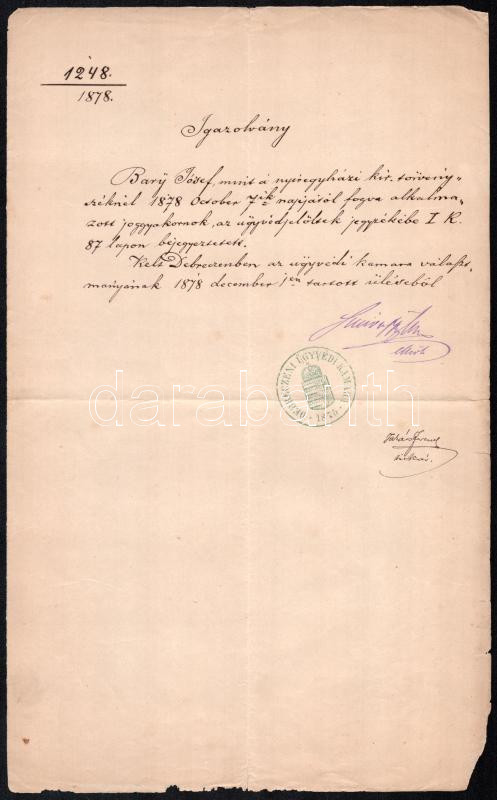 1248.
1878.
Igazolvány
Bary József, mint a nyiregyházi kir. törvény-
széknél 1878 October 7ik napjától fogva alkalma-
zott joggyakornok, az ügyvédjelöltek jegyzékébe I K.
87 lapon béjegyeztetett.
Kelt Debreczenben az ügyvédi kamara választ
mányának 1878 december 1én tartott üléséből
elnök
DEBRECZENI ÜGYVÉDI KAMARA
1875
darabanth
Ferencz
titkár.